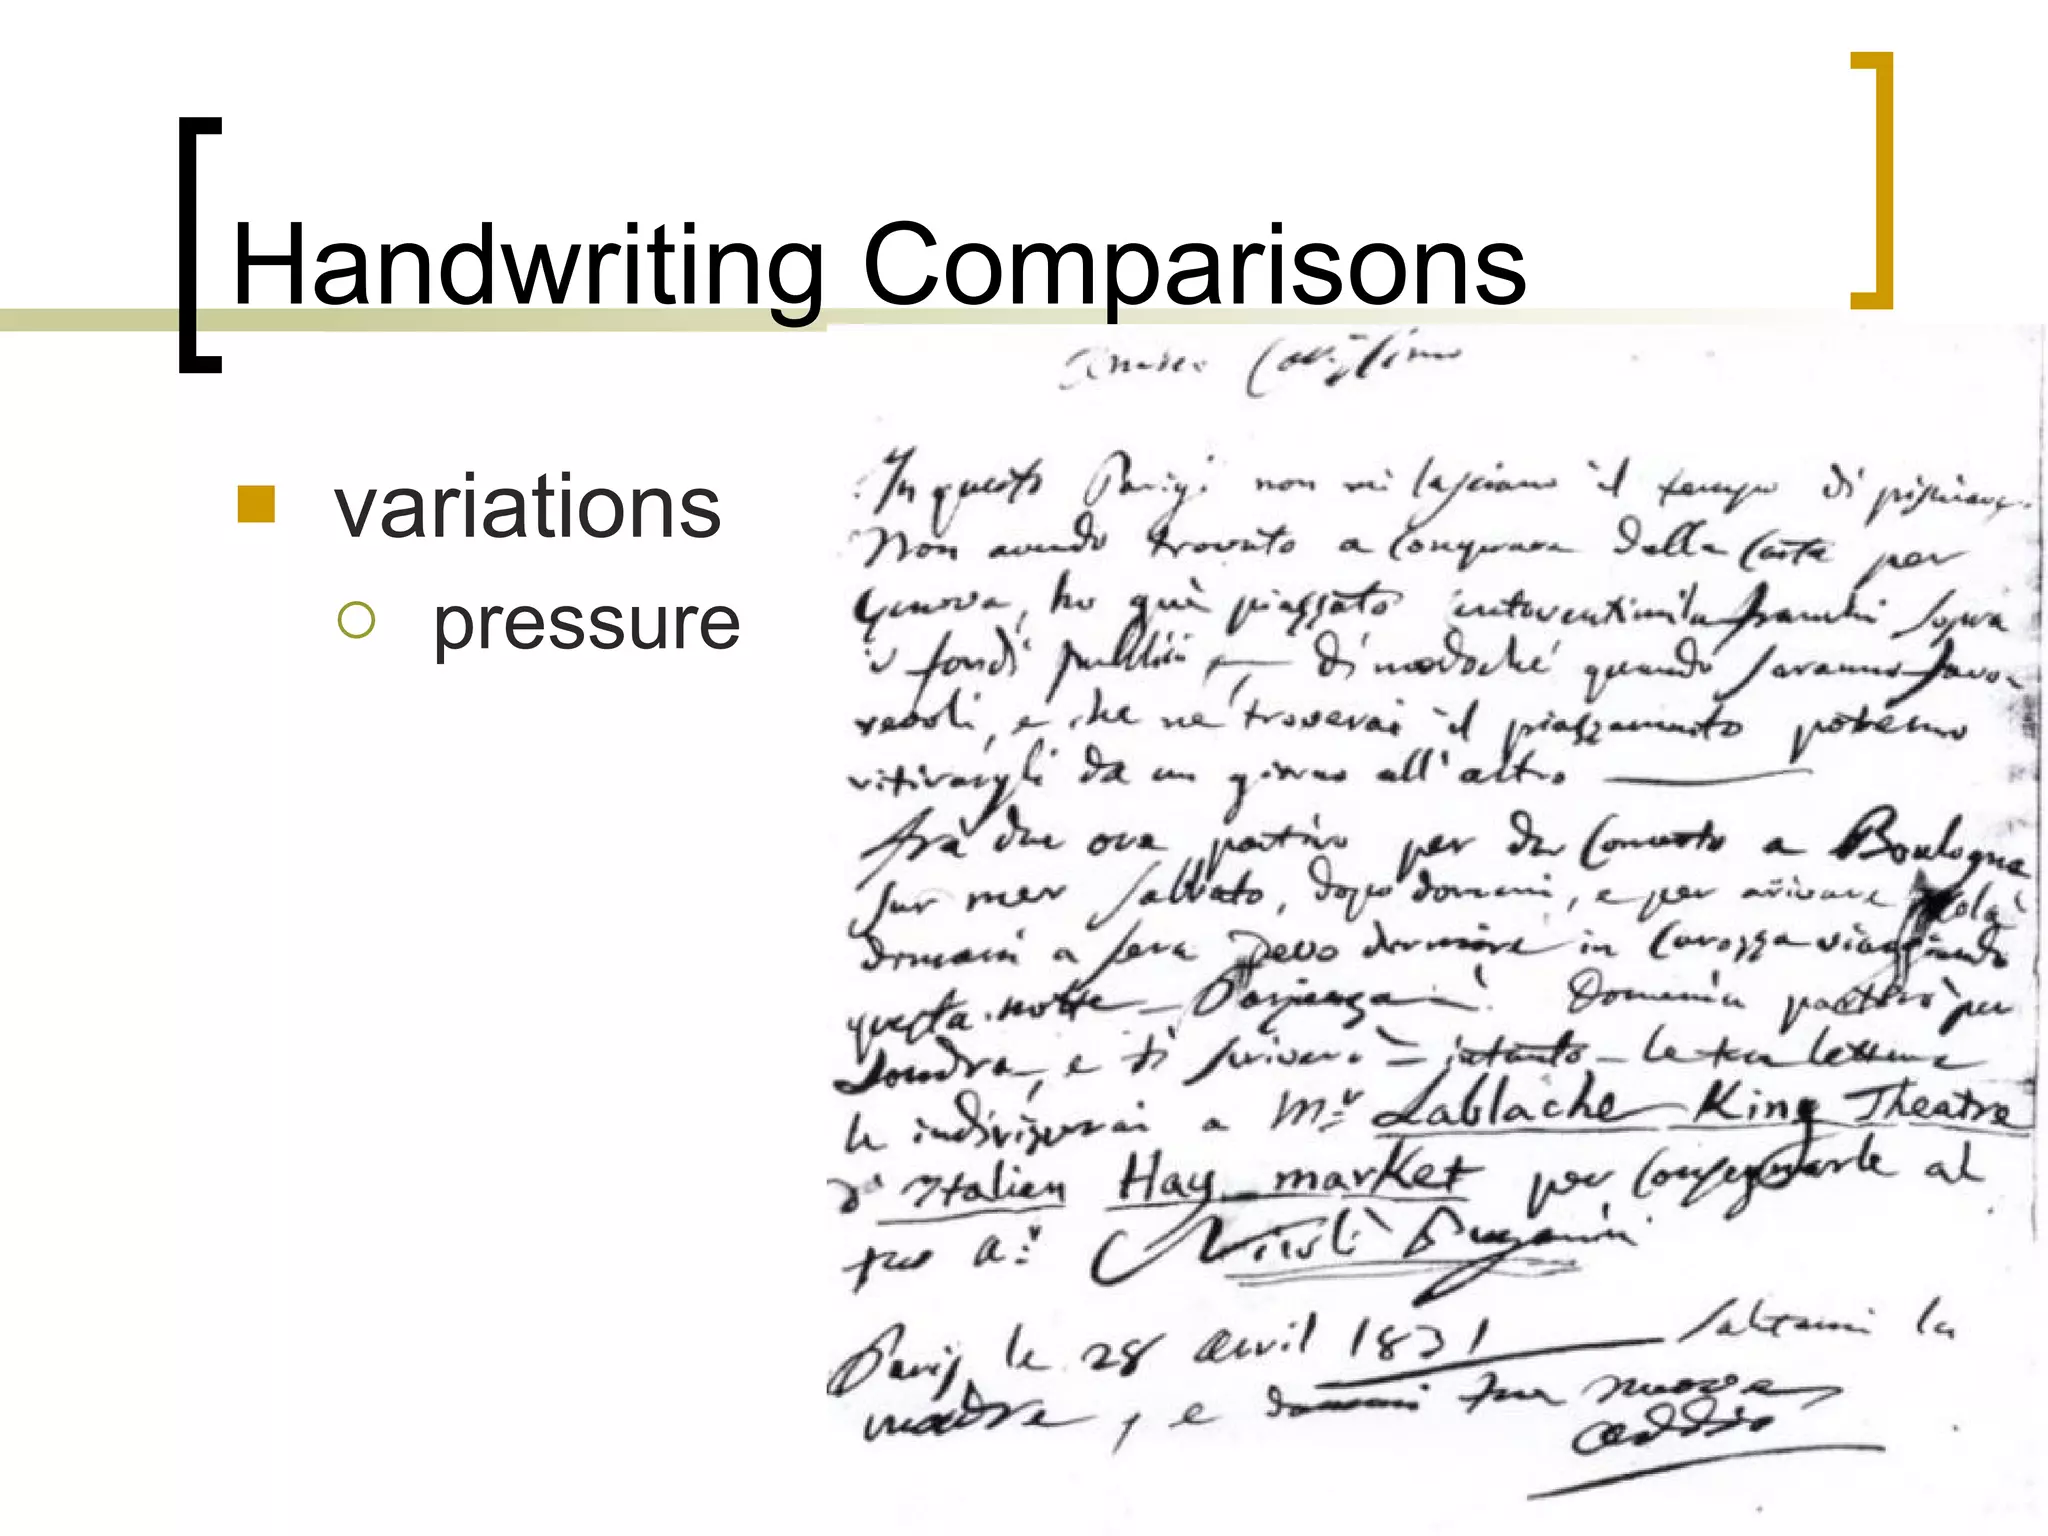 Handwriting Comparisons
variations
pressure
In questo Parigi non mi lasciano il tempo di
Non avendo trovato a Congruara della Carta per
Genova, ho quì piazzato franchi sopra
i fondi pubblici, — di modoché quando saranno favo-
revoli, e che ne troverai il piazzamento potremo
ritirargli da un giorno all'altro —
frà due ore partirò per dar Concerto a Boulogne
sur mer Sabbato, dopo domani, e per arrivare colà
domani a sera devo dormire in Carozza viaggiando
questa notte — Domenica partirò per
Londra, e ti scriverò — intanto — le tue lettere
le indirizzerai a Mr Lablache King Theatre
d'Italien Hay-market per consegnarle al
tuo a:^o Nicolò Paganini
Paris le 28 avril 1831 — Salutami la
madre, e dammi tue nuove
addio